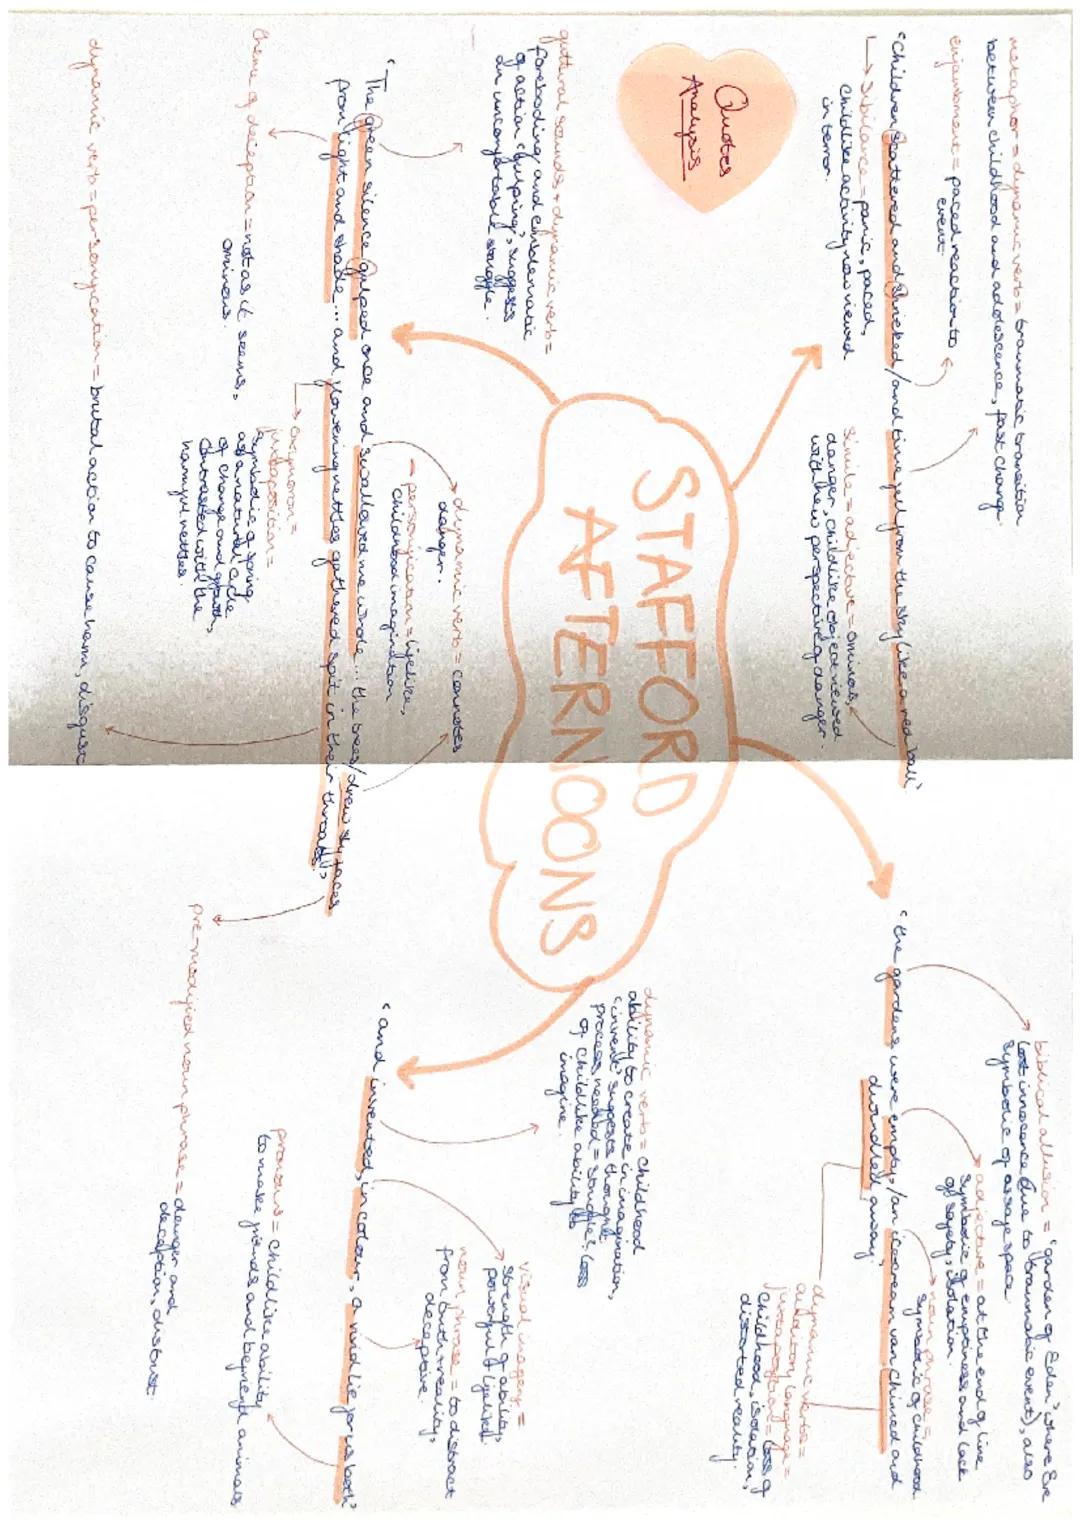 Quotes
Analysis
STAFFORD
AFTERNOONS
metaphor = dynamic verb = traumatic transition
between childhood and adolescence, fast change.
enjambment = paced reaction to
event
"Children scattered and shrieked / and time fell from the sky like a red ball"
→ Sibilance = panic, paced,
childlike activity now viewed
in terror.
simile = adjective = ominous,
danger, childlike object viewed
with new perspective of danger.
guttural sounds + dynamic verb =
foreboding and emblematic
of action 'gulping', suggests
an uncomfortable struggle.
"The green silence gulped once and swallowed me whole... the trees / drew sly faces
from light and shade... and flowering nettles gathered spit in their throats"
theme of deception = not as it seems,
ominous.
→ dynamic verb = connotes
danger.
- personification = lifelike,
childhood imagination
→ oxymoron =
juxtaposition =
symbolic of spring
as a natural cycle
of change and growth,
contrasted with the
harmful nettles
dynamic verb = personification = brutal action to cause harm, disgust
pre-modified noun phrase = danger and
deception, distrust.
"the gardens were empty / an ice cream van chimed and
dwindled away"
biblical allusion = "garden of Eden" where Eve
lost innocence (due to traumatic event), also
symbolic of a safe space
adjective = at the end of line
symbolic of emptiness and lack
of safety, isolation.
noun phrase =
symbolic of childhood.
dynamic verbs =
auditory language =
juxtaposition = loss of
childhood, isolation,
distorted reality.
dynamic verb = childhood
ability to create in imagination,
"invent" suggests thought
process needed = struggle? loss
of childlike ability to
imagine.
"and invented, in colour, a vivid lie for us both"
visual imagery =
strength of ability,
noun phrase = to distract
from truth + reality,
deceptive.
pronouns = childlike ability
to make friends and befriend animals